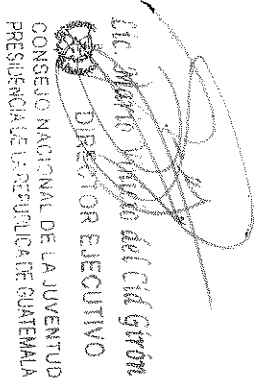 Lic. Mario del Cid Girón
DIRECTOR EJECUTIVO
CONSEJO NACIONAL DE LA JUVENTUD
PRESIDENCIA DE LA REPUBLICA DE GUATEMALA